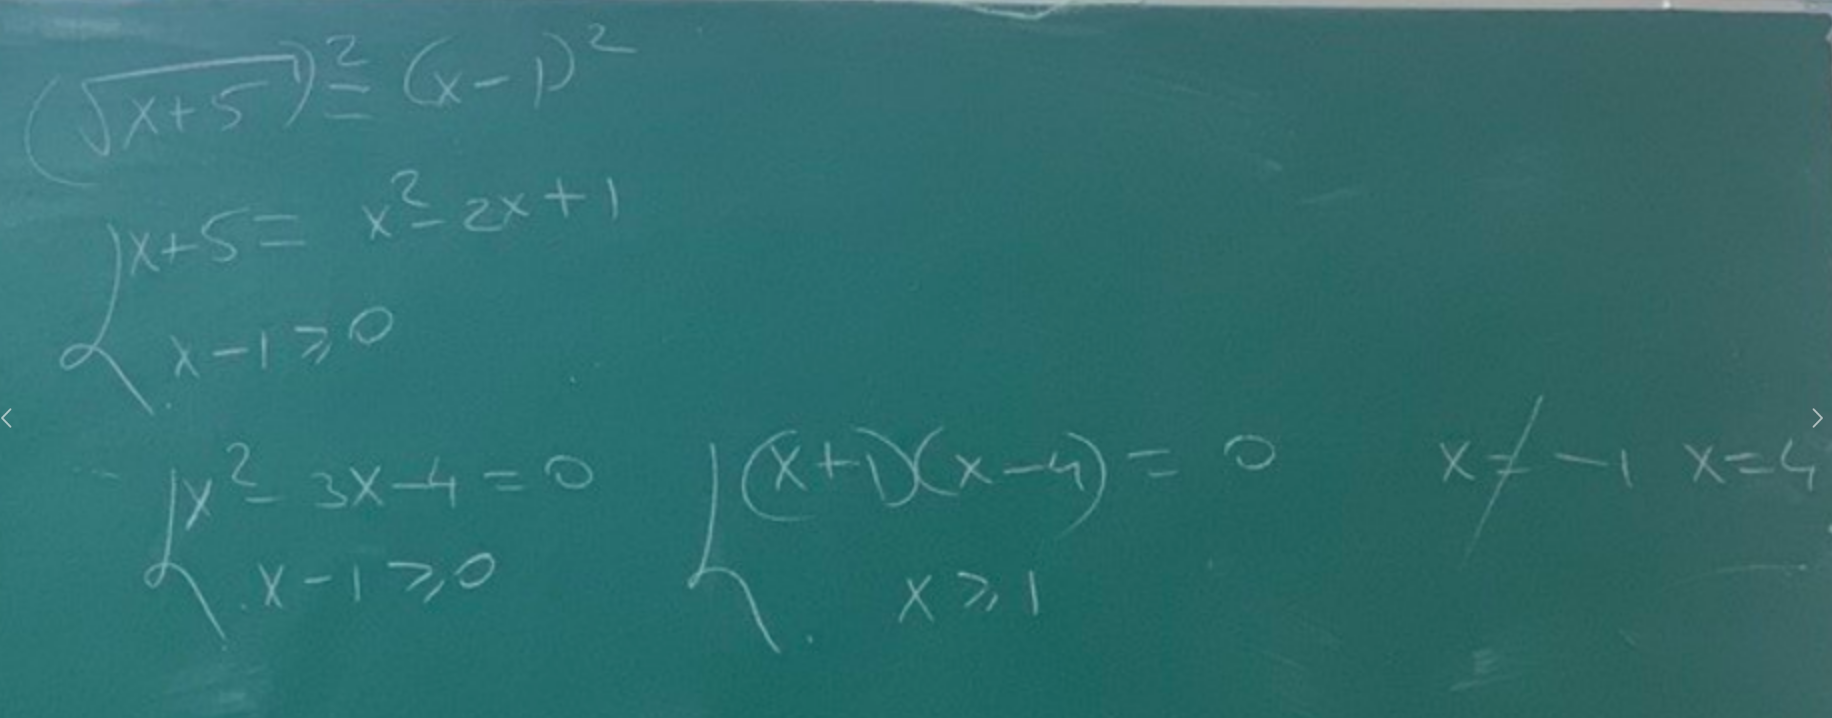 (√x+5)² = (x-1)²
{ x+5 = x² - 2x + 1
x-1 ⩾ 0
{ x² - 3x - 4 = 0 { (x+1)(x-4) = 0 x ≠ -1 x = 4
x-1 ⩾ 0 x ⩾ 1